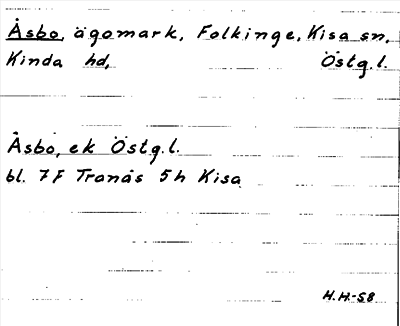 Åsbo, ägomark, Folkinge, Kisa sn,
Kinda hd, Östg.l.
Åsbo, ek Östg.l.
bl. 7F Tranås 5h Kisa
H.H.-58